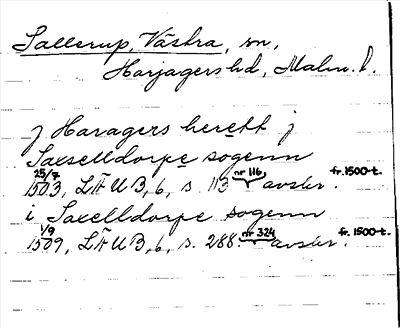 Sallerup, Västra, sn,
Harjagers hd, Malm. l.
J Haragers herett j
Saxselldorpe sogenn
25/7 1503, LÄUB, 6, s. 113 nr 116, avskr. fr. 1500-t.
i Saxelldorpe sogenn
1/9 1509, LÄUB, 6, s. 288. nr 324 avskr. fr. 1500-t.